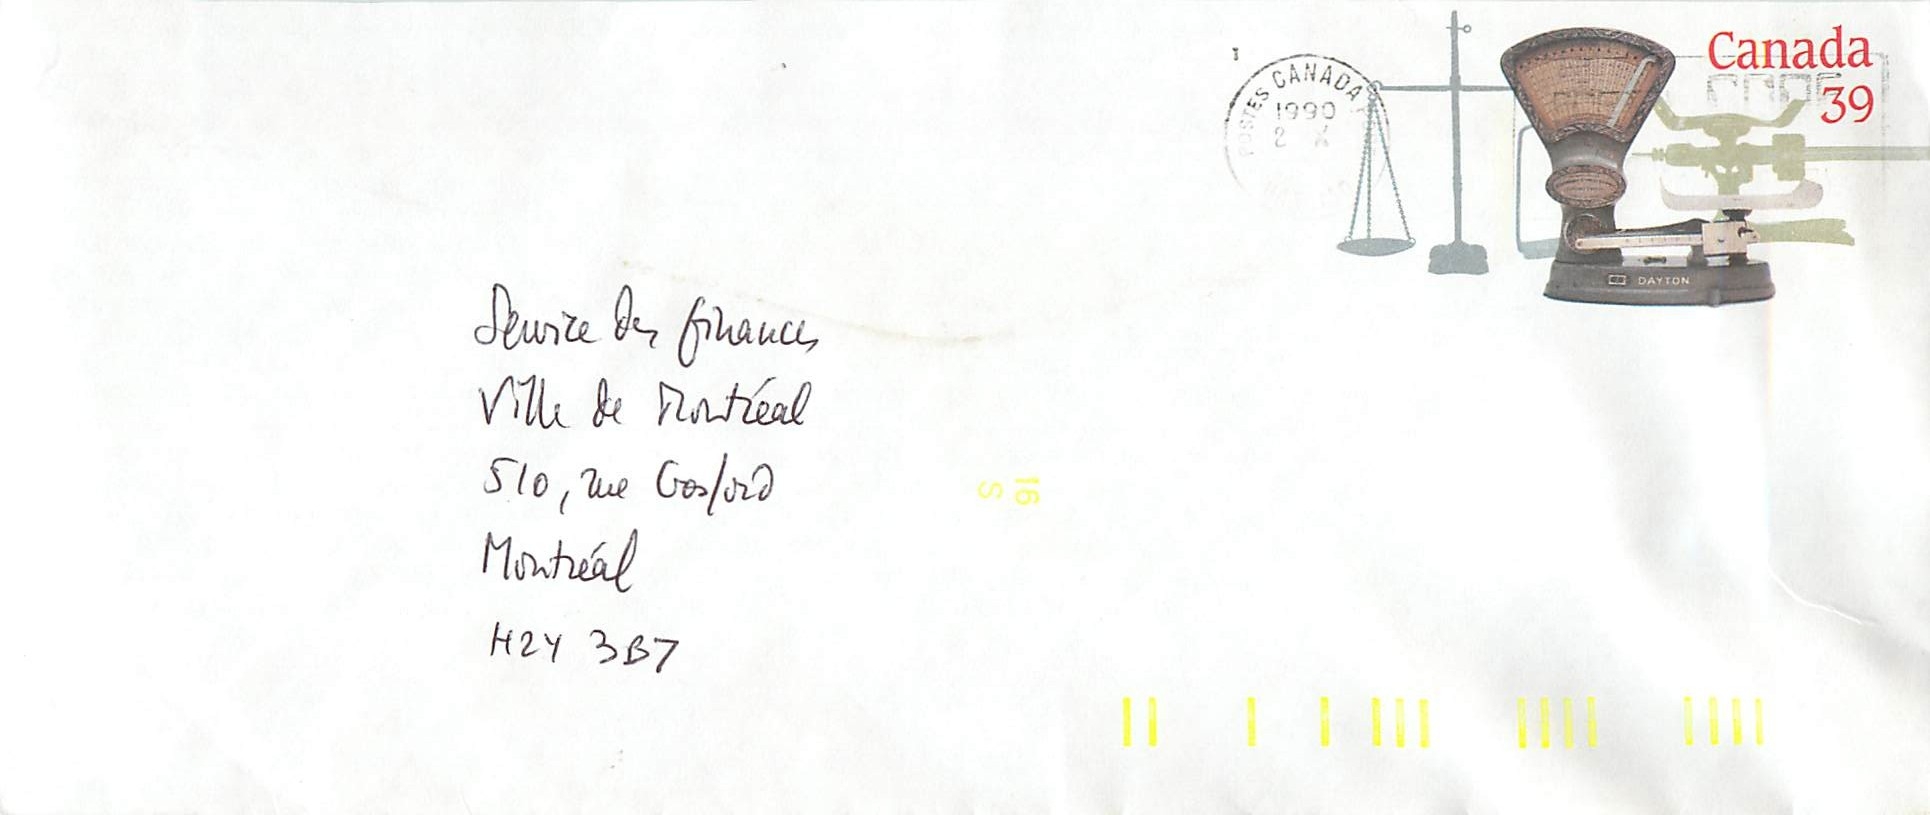 POSTES CANADA
1990
2 X
Canada
39
DAYTON
Service des finances
Ville de Montréal
510, rue Gosford
Montréal
H2Y 3B7
16
S